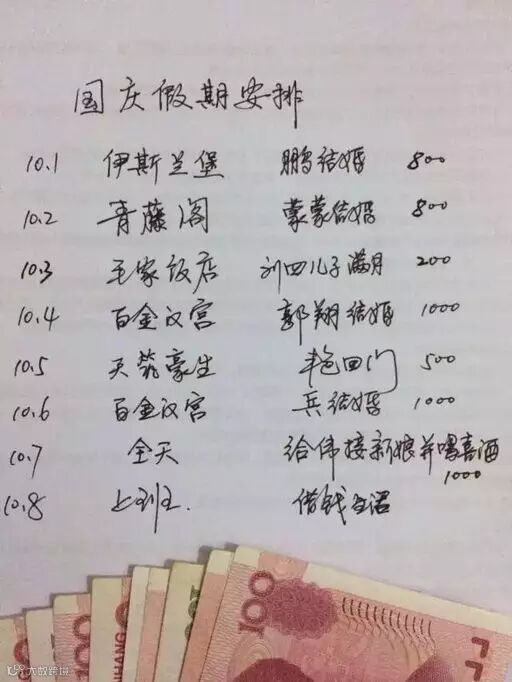 国庆假期安排
10.1 伊斯兰堡 鹏结婚 800
10.2 青藤阁 蒙蒙结婚 800
10.3 王家饭店 刘四儿子满月 200
10.4 百金汉宫 郭翔结婚 1000
10.5 天龙豪生 艳回门 500
10.6 百金汉宫 兵结婚 1000
10.7 全天 给伟接新娘并喝喜酒
1000
10.8 上班. 借钱生活
100
大数跨境